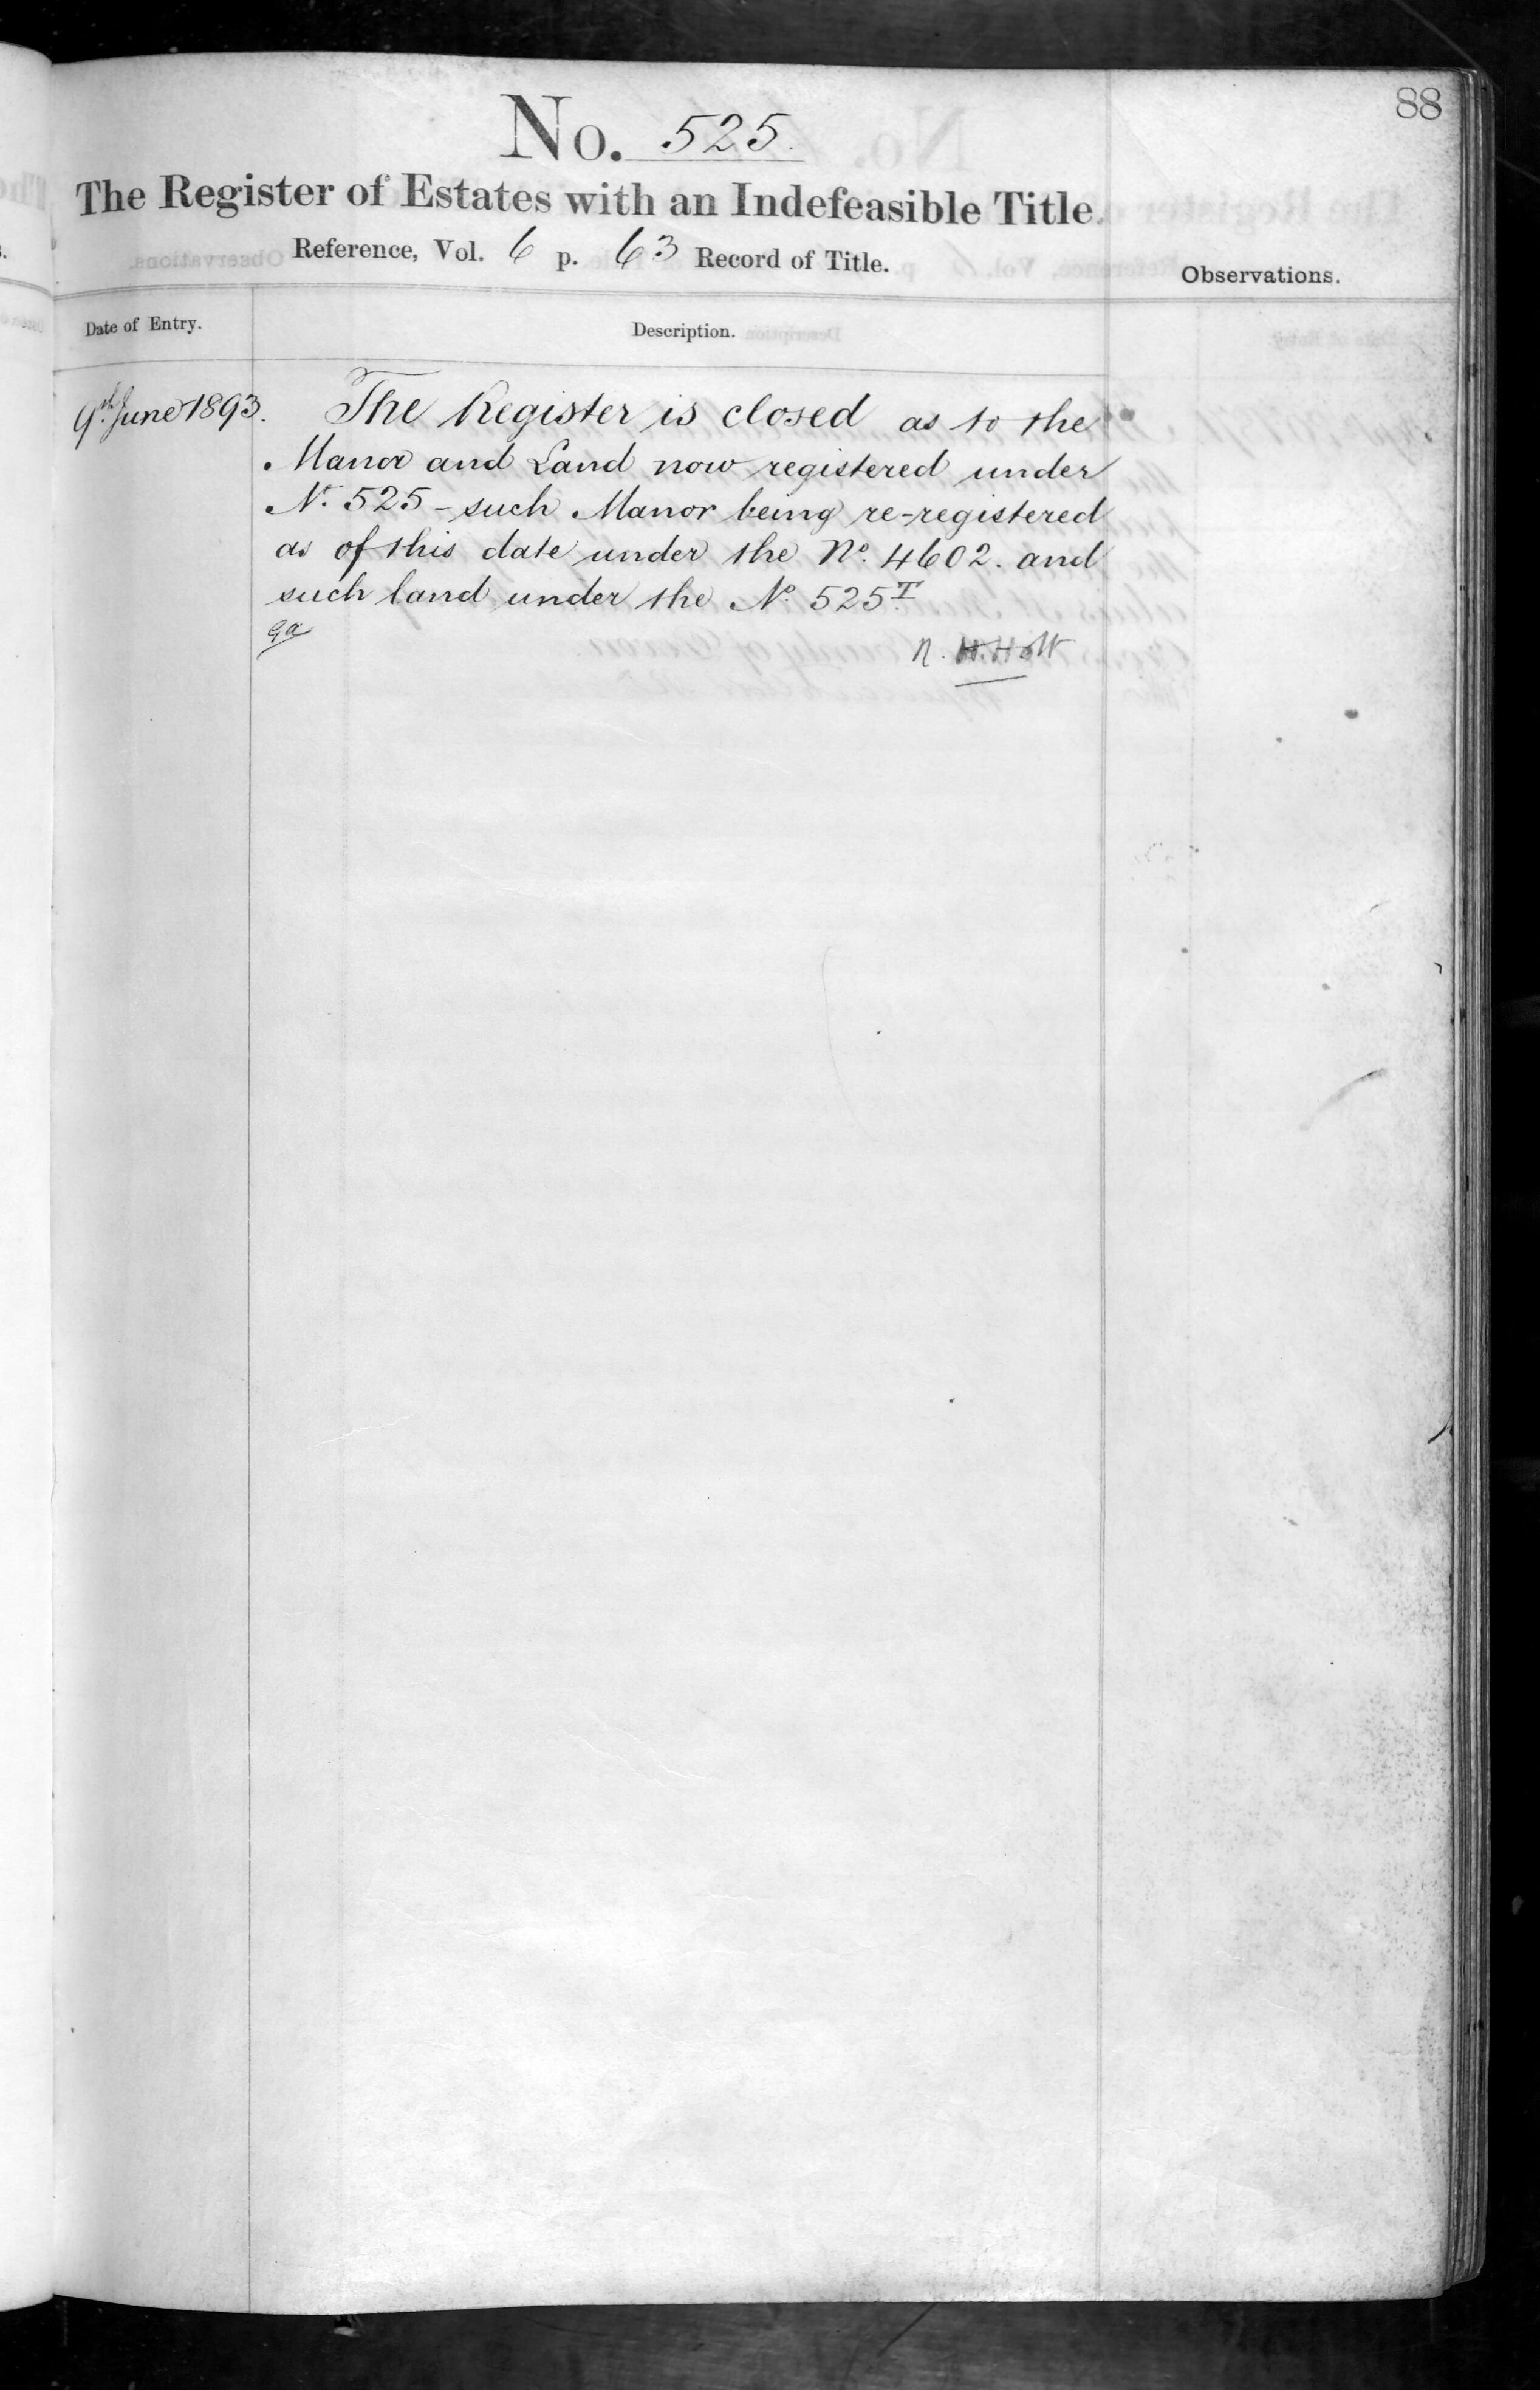 88
No. 525.
The Register of Estates with an Indefeasible Title.
Reference, Vol. 6 p. 63 Record of Title.
Observations.
Date of Entry.
Description.
9th June 1893.
The Register is closed as to the
Manor and Land now registered under
No. 525 - such Manor being re-registered
as of this date under the No. 4602. and
such land under the No. 525 I
R. H. Holt